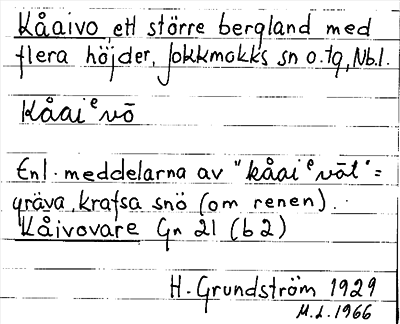 Kåaivo, ett större bergland med
flera höjder, Jokkmokks sn o. tg, Nb.l.
kåaiᵉvō
Enl. meddelarna av "kåaiᵉvāt" =
gräva, krafsa snö (om renen).
Kåivovare Gn 21 (b 2)
H. Grundström 1929
M.L. 1966